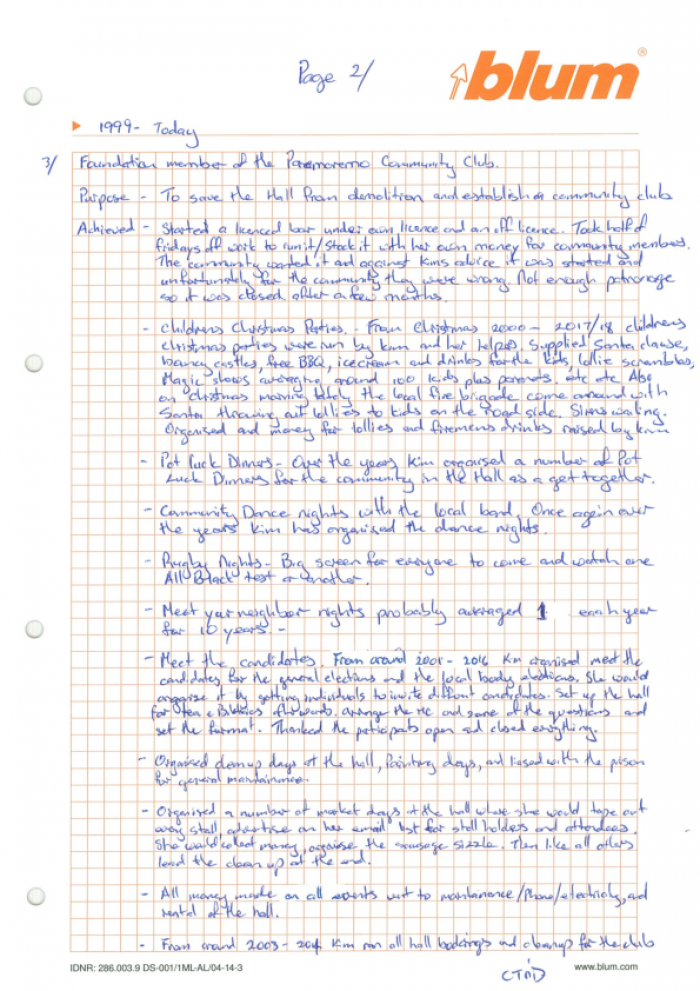 Page 2/
blum®
1999 - Today
3/ Foundation member of the Paremoremo Community Club.
Purpose - To save the Hall from demolition and establish a community club
Achieved - Started a licenced bar under own licence and an off licence. Took half of
fridays off work to run it/stock it with her own money for community members.
The community wanted it and against Kims advice it was started and
unfortunately for the community they were wrong. Not enough patronage
so it was closed after a few months.
- Childrens Christmas Parties. - From Christmas 2000 - 2017/18 childrens
christmas parties were run by Kim and her helpers. Supplied Santa clause,
bouncy castles, free BBQ, icecream and drinks for the kids, lollie scrambles,
Magic shows averaging around 100 kids plus parents. etc etc. Also
on Christmas morning lately the local fire brigade come around with
Santa throwing out lollies to kids on the road side. Sirens wailing.
Organised and money for lollies and firemens drinks raised by Kim
- Pot luck Dinners - Over the years Kim organised a number of Pot
Luck Dinners for the community in the Hall as a get together.
- Community Dance nights with the local band. Once again over
the years Kim has organised the dance nights.
- Rugby Nights - Big screen for everyone to come and watch one
All Black test or another.
- Meet your neighbor nights probably averaged 1 each year
for 10 years. -
- Meet the candidates. From around 2001 - 2016 Kim organised meet the
candidates for the general elections and the local body elections. She would
organise it by getting individuals to invite different candidates. Set up the hall
for tea & Bikkies afterwards. arrange the MC and some of the questions and
set the format. Thanked the participants open and closed everything.
- Organised cleanup days at the hall, Painting days, and liased with the prison
for general maintainance.
- Organised a number of market days at the hall where she would tape out
every stall, advertise on her email list for stall holders and attendees.
She would collect money, organise the sausage sizzle. Then like all others
lead the clean up at the end.
- All money made on all events went to maintainence/Phone/electricity, and
rental of the hall.
- From around 2003 - Kim ran all hall bookings and cleanup for the club
CTN'D
IDNR: 286.003.9 DS-001/1ML-AL/04-14-3
www.blum.com